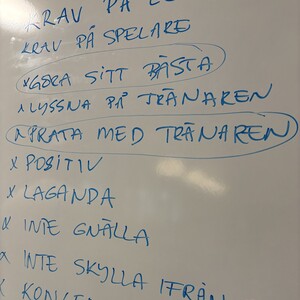 KRAV PÅ
KRAV PÅ SPELARE
x GÖRA SITT BÄSTA
x LYSSNA PÅ TRÄNAREN
x PRATA MED TRÄNAREN
x POSITIV
x LAGANDA
x INTE GNÄLLA
x INTE SKYLLA IFRÅN
x